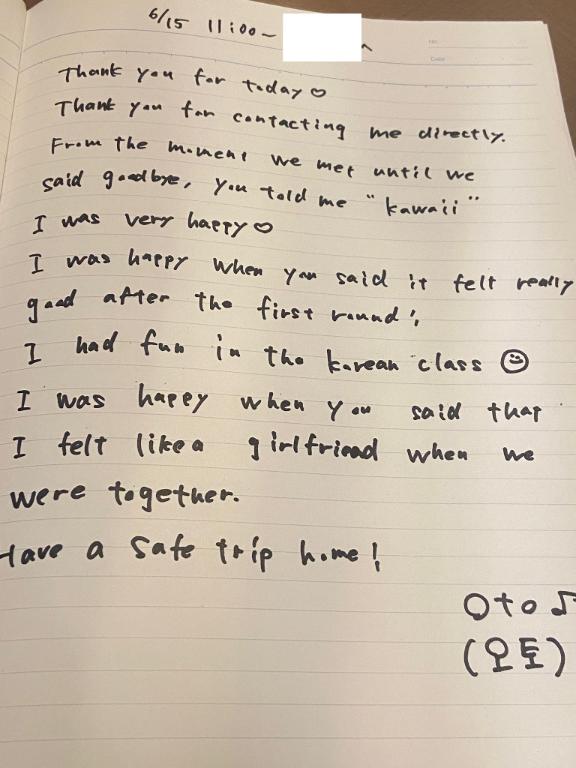 6/15 11:00~
Thank you for today♡
Thank you for contacting me directly.
From the moment we met until we
said goodbye, you told me "kawaii"
I was very happy♡
I was happy when you said it felt really
good after the first round!,
I had fun in the korean class ☺
I was happy when you said that
I felt like a girlfriend when we
were together.
Have a safe trip home!
Oto♪
(오토)